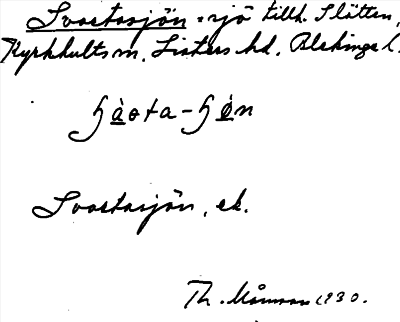 Svartasjön = sjö tillh. Slätten,
Kyrkhults sn. Listers hd. Blekinge l.
Svartasjön, ek.
Th. Månsson 1930.